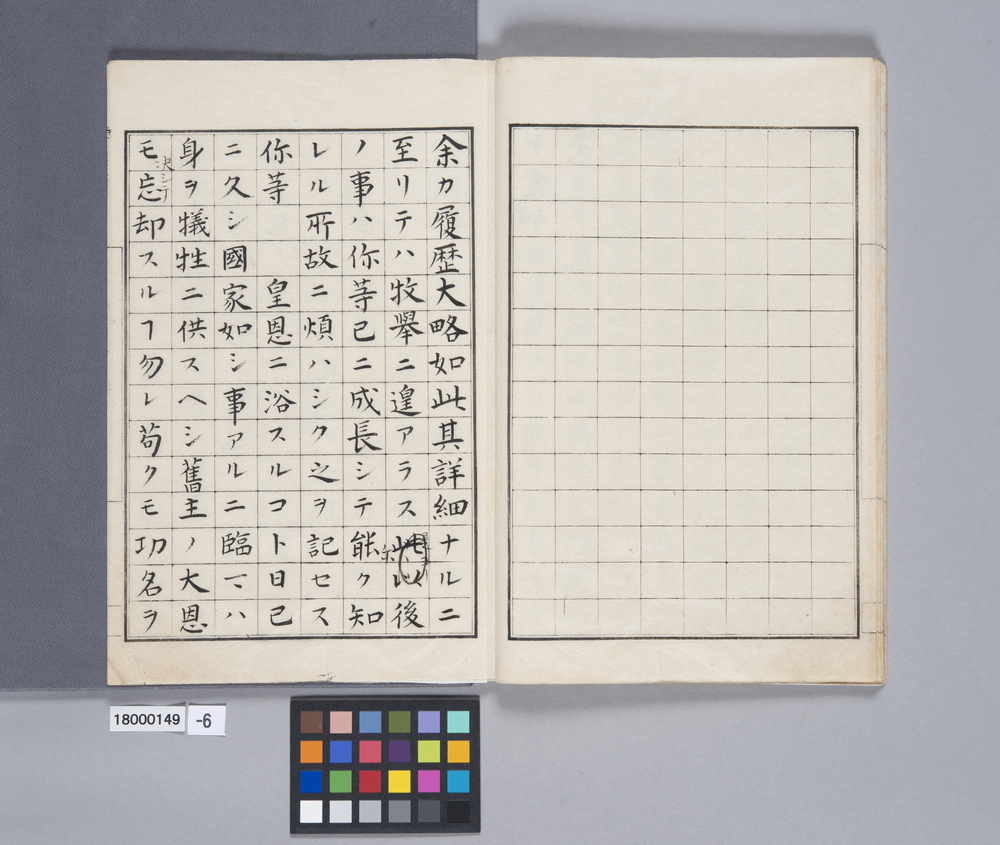 余カ履歴大略如此其詳細ナルニ
至リテハ枚舉ニ遑アラス後
ノ事ハ你等已ニ成長シテ能ク知
レル所故ニ煩ハシク之ヲ記セス
你等 皇恩ニ浴スルコト日已
ニ久シ國家如シ事アルニ臨マハ
身ヲ犠牲ニ供スヘシ舊主ノ大恩
決シテ
モ忘却スルヿ勿レ苟クモ功名ヲ
18000149 -6